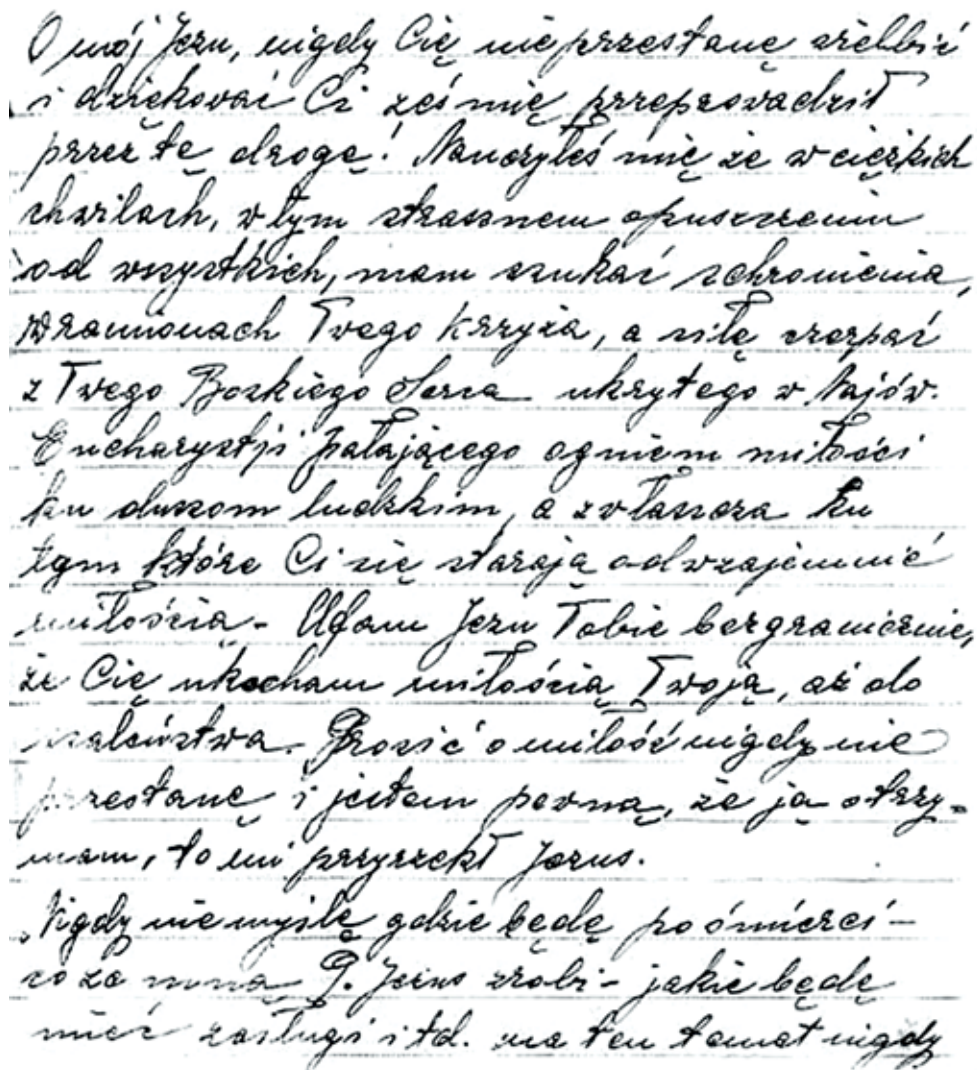 O mój Jezu, nigdy Cię nie przestanę wielbić
i dziękować Ci żeś mię przeprowadził
przez tę drogę! Nauczyłeś mię że w ciężkich
chwilach, w tym strasznem opuszczeniu
od wszystkich, mam szukać schronienia,
w ramionach Twego Krzyża, a siłę czerpać
z Twego Boskiego Serca ukrytego w Najśw.
Eucharystji pałającego ogniem miłości
ku duszom ludzkim, a zwłaszcza ku
tym które Ci się starają odwzajemnić
miłością - Ufam Jezu Tobie bezgranicznie,
że Cię ukocham miłością Twoją, aż do
szaleństwa. Prosić o miłość nigdy nie
przestanę i jestem pewną, że ją otrzy-
mam, to mi przyrzekł Jezus.
Nigdy nie myślę gdzie będę po śmierci -
co ze mną P. Jezus zrobi - jakie będę
mieć zasługi i td. na ten temat nigdy